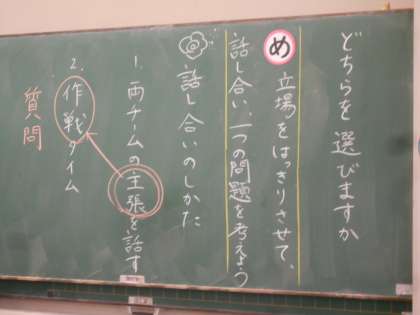 どちらを選びますか
め 立場をはっきりさせて、
話し合い、一つの問題を考えよう
話し合いのしかた
1. 両チームの主張を話す
2. 作戦タイム
質問